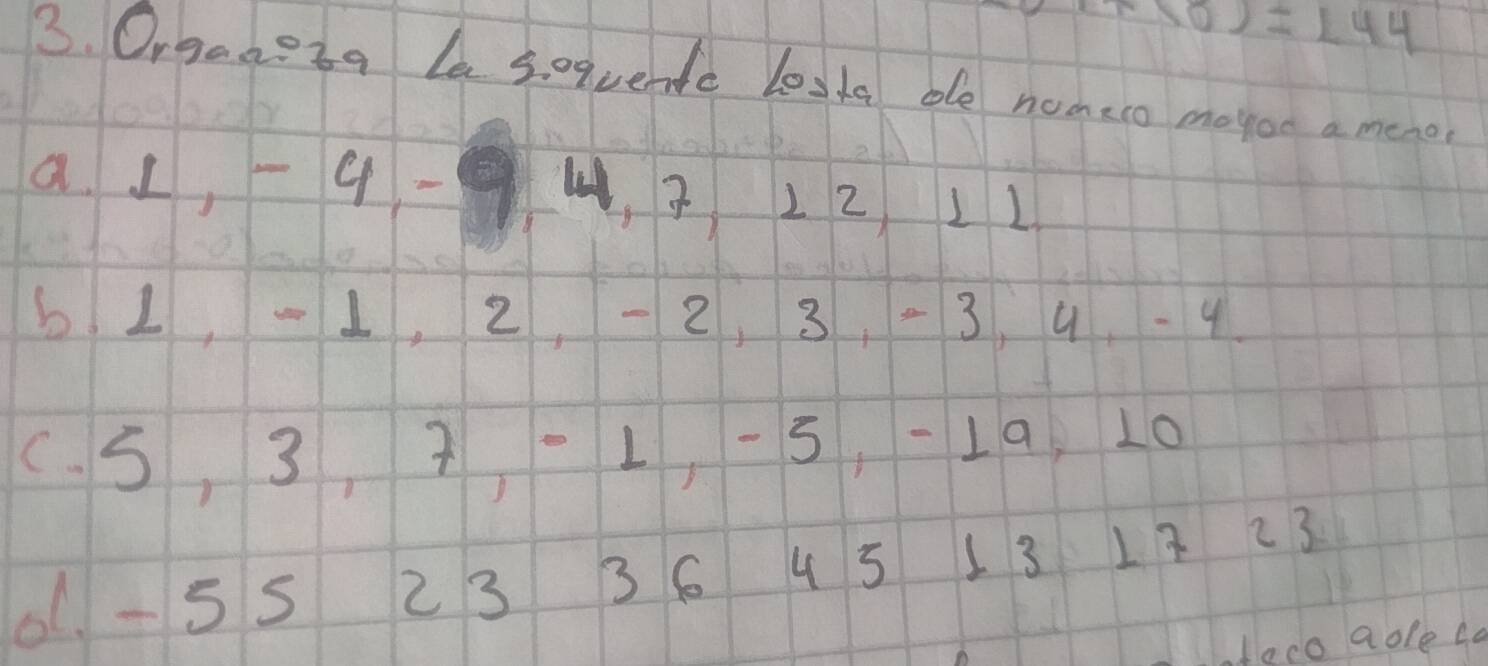 ) = 144
3. Organiza la siguiente lista de numero mayor a menor
a. 1, -4, -9, 4, 7, 12, 11.
b. 1, -1, 2, -2, 3, -3, 4, -4.
c. 5, 3, 7, -1, -5, -19, 10
d. -55 23 36 45 13 17 23